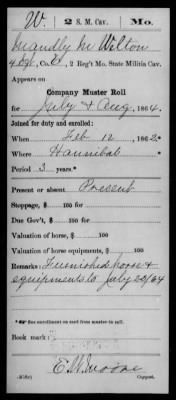 W. | 2 S. M. Cav. | Mo.
Mandly M Wilton
, 2 Reg't Mo. State Militia Cav.
Appears on
Company Muster Roll
for July & Aug, 1864.
Joined for duty and enrolled:
When Feb 12, 1862*
Where Hannibal
Period 3 years.*
Present or absent Present
Stoppage, $ 100 for
Due Gov't, $ 100 for
Valuation of horse, $ 100
Valuation of horse equipments, $ 100
Remarks: Furnished horse &
equipments to July 20/64
Book mark:
E. W. Moore
Copyist.